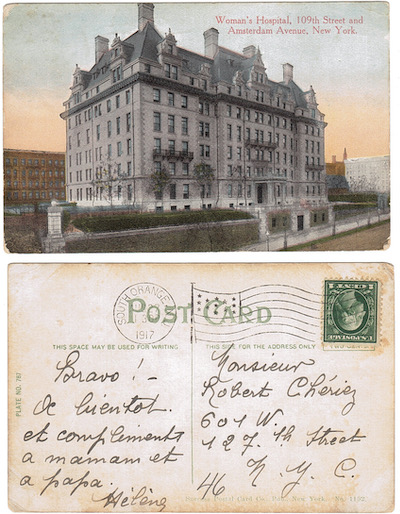 Woman's Hospital, 109th Street and
Amsterdam Avenue, New York.
SOUTH ORANGE
1917
POST CARD
THIS SPACE MAY BE USED FOR WRITING
THIS SIDE FOR THE ADDRESS ONLY
PLATE NO. 767
Bravo! -
Ac bientot.
et compliments
a mamam et
a papa.
Hélène
Monsieur
Robert Chériez
601 W.
127. th Street
46 N. Y. C.
Post Card Co., New York. No.